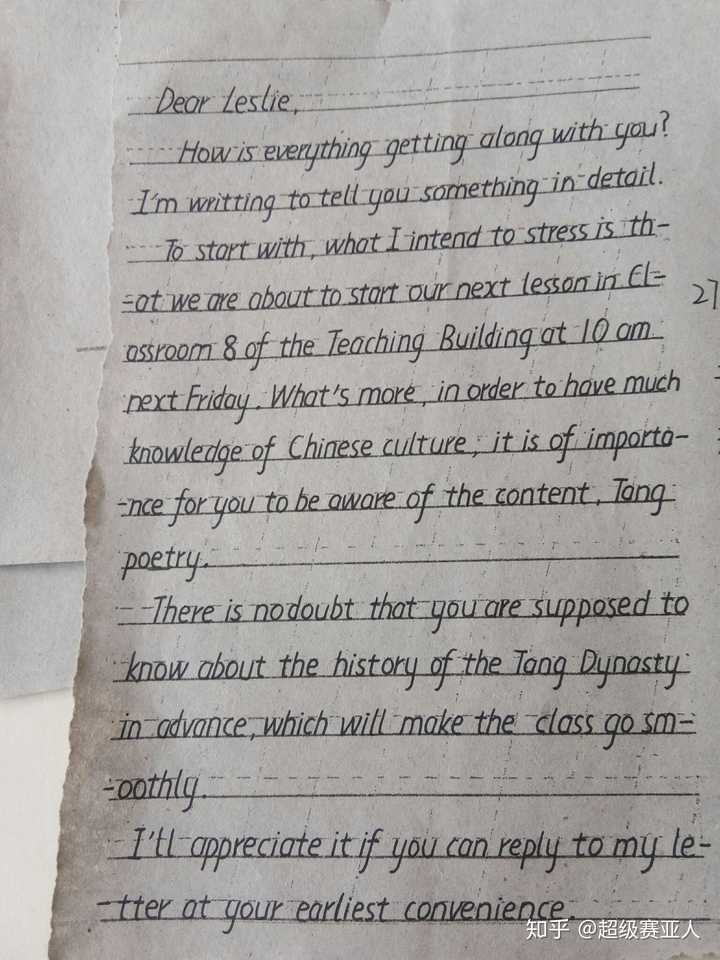 Dear Leslie,
How is everything getting along with you?
I'm writting to tell you something in detail.
To start with, what I intend to stress is th-
-at we are about to start our next lesson in Cl-
assroom 8 of the Teaching Building at 10 am
next Friday. What's more, in order to have much
knowledge of Chinese culture, it is of importa-
-nce for you to be aware of the content, Tang
poetry.
There is no doubt that you are supposed to
know about the history of the Tang Dynasty
in advance, which will make the class go sm-
-oothly.
I'll appreciate it if you can reply to my le-
-tter at your earliest convenience.
27
知乎 @超级赛亚人